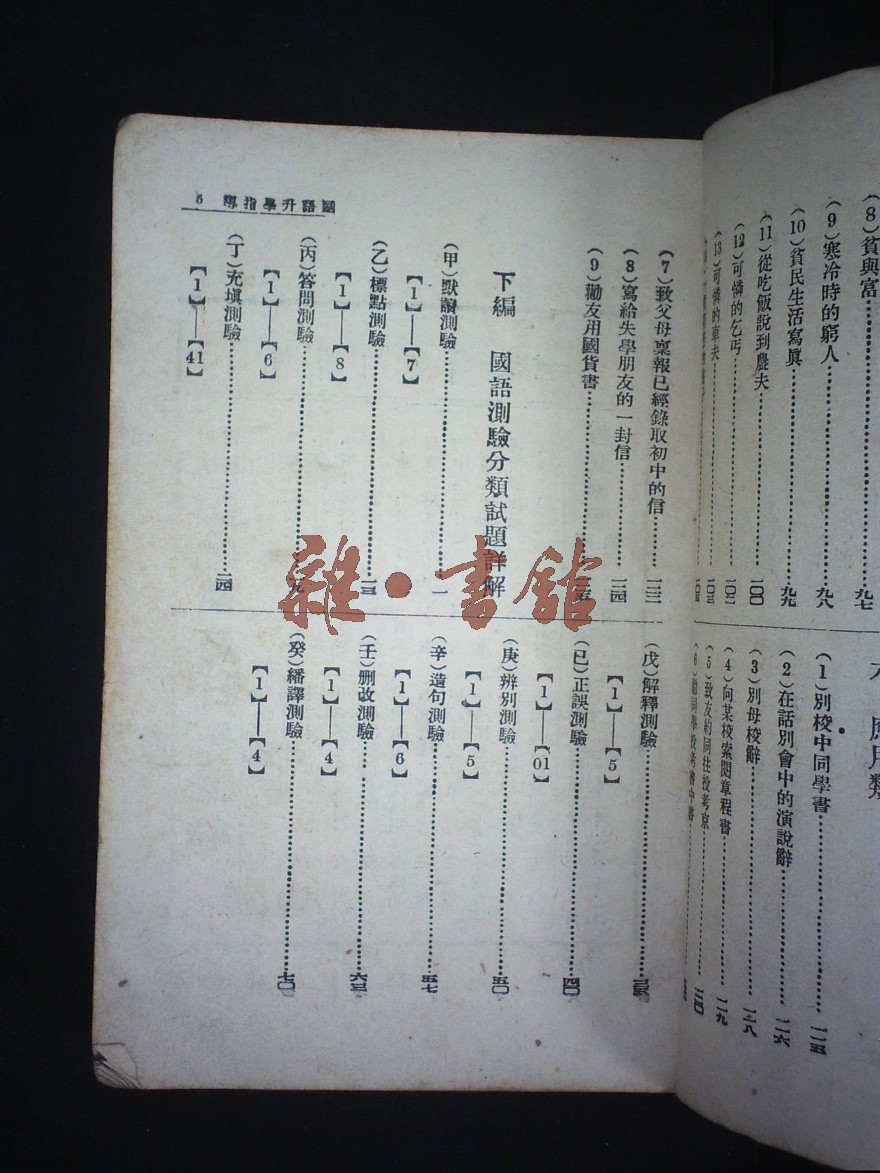 (8)貧與富……九七
(9)寒冷時的窮人……九八
(10)貧民生活寫真……九九
(11)從吃飯說到農夫……一〇〇
(12)可憐的乞丐……一〇二
(13)可憐的車夫……一〇三
應用類
(1)別校中同學書……一一五
(2)在話別會中的演說辭……一一六
(3)別母校辭……一一八
(4)向某校索閱章程書……一一九
(5)致友約同往投考京……一二〇
國語升學指導 6
(7)致父母稟報已經錄取初中的信……一二三
(8)寫給失學朋友的一封信……一二四
(9)勸友用國貨書……一二五
下編 國語測驗分類試題詳解
(甲)默讀測驗……一
【1】——【7】
(乙)標點測驗……一三
【1】——【8】
(丙)答問測驗……一九
【1】——【6】
(丁)充填測驗……二四
【1】——【41】
(戊)解釋測驗……三五
【1】——【5】
(已)正誤測驗……四〇
【1】——【01】
(庚)辨別測驗……五〇
【1】——【5】
(辛)造句測驗……五七
【1】——【6】
(壬)刪改測驗……六三
【1】——【4】
(癸)繙譯測驗……七〇
【1】——【4】
雜·書館